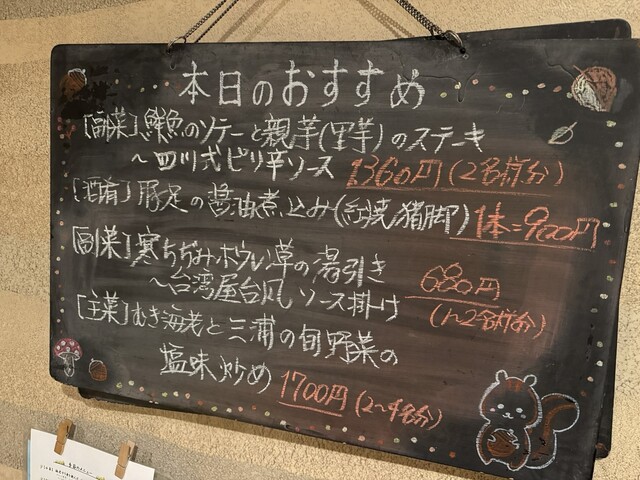 本日のおすすめ
[副菜]鮮魚のソテーと親芋(里芋)のステーキ
〜四川式ピリ辛ソース 1360円(2名前分)
[酒肴]豚足の醤油煮込み(紅焼猪脚)1本=900円
[副菜]寒ちぢみホウレン草の湯引き
〜台湾屋台風ソース掛け 680円
(1〜2名前分)
[主菜]むき海老と三浦の旬野菜の
塩味炒め 1700円(2〜4名分)